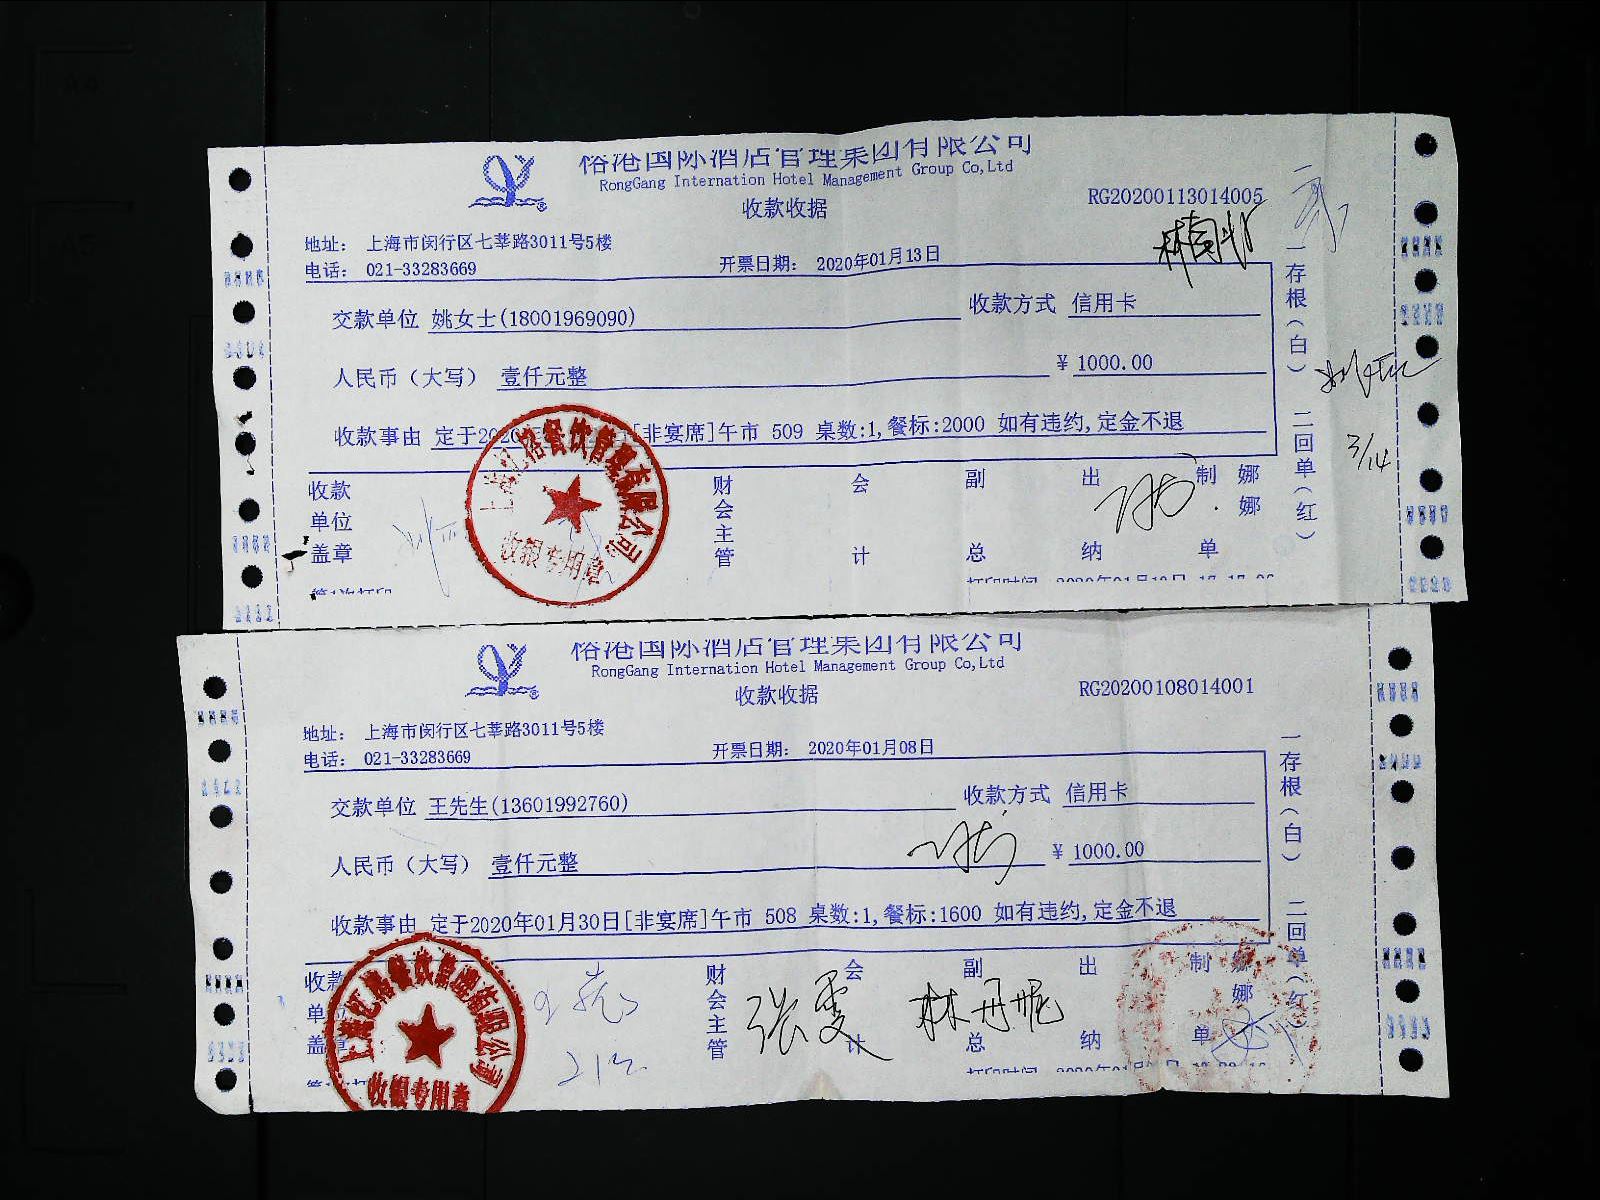 裕港国际酒店管理集团有限公司
RongGang Internation Hotel Management Group Co,Ltd
收款收据
RG20200113014005
地址： 上海市闵行区七莘路3011号5楼
电话： 021-33283669
开票日期： 2020年01月13日
交款单位 姚女士(18001969090)
收款方式 信用卡
人民币（大写） 壹仟元整
¥ 1000.00
收款事由 定于2020年 日[非宴席]午市 509 桌数:1,餐标:2000 如有违约,定金不退
收款单位盖章
财会主管
会计
副总
出纳
制单
娜娜
一存根（白） 二回单（红）
3/14
餐饮管理有限公司
收银专用章
裕港国际酒店管理集团有限公司
RongGang Internation Hotel Management Group Co,Ltd
收款收据
RG20200108014001
地址： 上海市闵行区七莘路3011号5楼
电话： 021-33283669
开票日期： 2020年01月08日
交款单位 王先生(13601992760)
收款方式 信用卡
人民币（大写） 壹仟元整
¥ 1000.00
收款事由 定于2020年01月30日[非宴席]午市 508 桌数:1,餐标:1600 如有违约,定金不退
收款单位盖章
财会主管
张雯
会计
林丹妮
副总
出纳
制单
娜娜
一存根（白） 二回单（红）
收银专用章